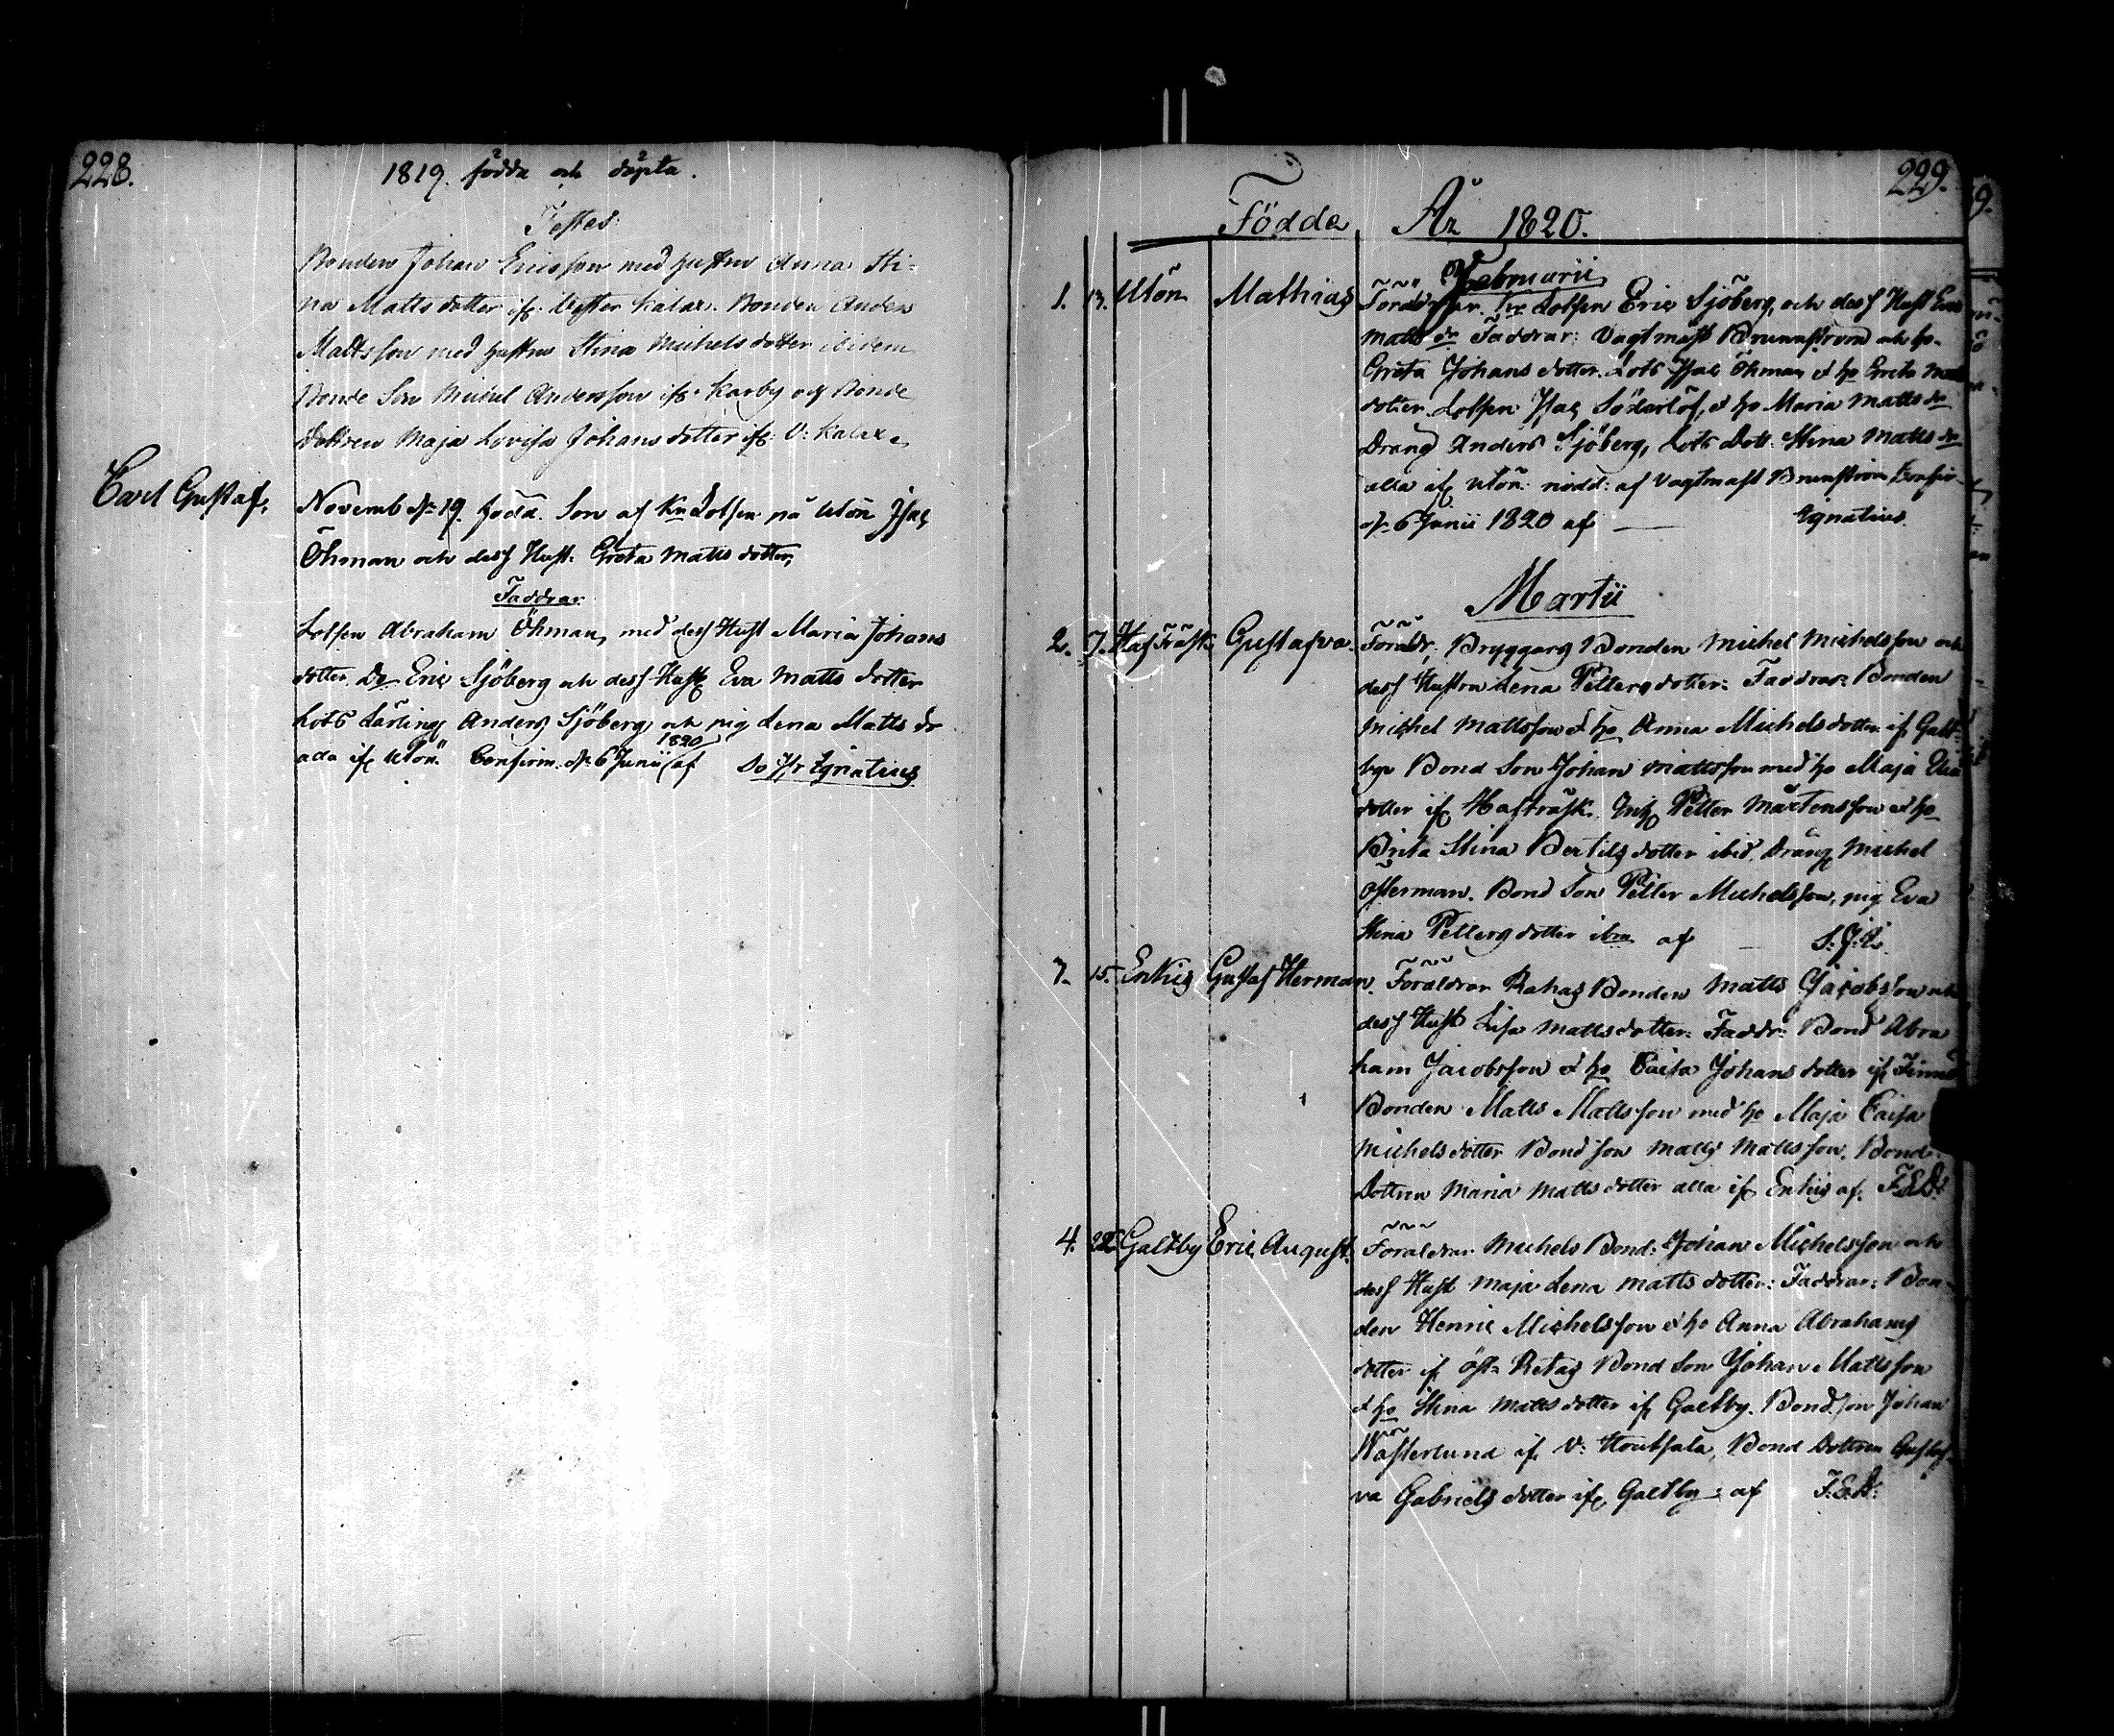 228.
1819. födda och döpta.
Testes:
Bonden Johan Ericsson med hustru Anna Sti-
na Mattsdotter if. Vester Kalax. Bonden Anders
Mattsson med hustru Stina Michelsdotter ibidem
Bonde Son Michel Andersson if. Karby och Bonde
dottren Maja Lovisa Johansdotter if: V: Kalax.
Carl Gustaf,
Novemb. 19. född. Son af Lotsen på Utön Isac
Öhman och dess Hust. Greta Mattsdotter,
Faddrar
Lotsen Abraham Öhman, med dess Hust Maria Johans
dotter. Do Eric Sjöberg och dess Hust Eva Matts dotter
Lots Lärling Anders Sjöberg och pig Lena Matts dr
1820
alla if Utön. Confirm. d. 6 Junii af Ignatius
229.
Födda År 1820.
Februarii
1. 13. Utön Mathias Föräldrar. Lotsen Eric Sjöberg, och dess Hust Eva
Matts dr Faddrar: Vagtmäst Brunnström och ho.
Greta Johansdotter. Lots Isac Öhman & ho Greta Matts
dotter. Lotsen Isac Söderlöf, & ho Maria Matts dr
Dräng Anders Sjöberg, Lots Dott. Stina Matts dr
alla if Utön: nödd: af Vagtmäst Brunström Confir
d. 6 Junii 1820 af Ignatius.
Martii
2. 7. Hafträsk Gustafva. Föräldr. Bryggars Bonden Michel Michelsson och
dess Hustru Lena Pettersdotter: Faddrar: Bonden
Michel Mattsson & ho Anna Michelsdotter if Galt
by Bond Son Johan Mattsson med ho Maja
dotter if Hafträsk. Petter Mårtensson & ho
Brita Stina Bertilsdotter ibid. Dräng Michel
Österman. Bond Son Petter Michelsson, pig Eva
Stina Pettersdotter ibm af S: J: I.
7. 15. Enkis Gustaf Herman. Föräldrar Rahas Bonden Matts Jacobsson och
dess Hust Lisa Mattsdotter: Faddr: Bond Abra
ham Jacobsson & ho Caisa Johansdotter if Finn
Bonden Matts Mattsson med ho Maja Caisa
Michelsdotter Bond son Matts Mattsson. Bond
Dottren Maria Mattsdotter alla if Enkis af. F.E.D.
4. 22. Galtby Eric August. Föräldrar Michels Bond. Johan Michelsson och
dess Hust Maja Lena Mattsdotter: Faddrar: Bon-
den Henric Michelsson & ho Anna Abrahams
dotter if Öst. Retas Bond Son Johan Mattsson
& ho Stina Mattsdotter if Galtby. Bond son Johan
Wästerlund if V: Houtsala, Bond Dottren Gustaf-
va Gabrielsdotter if Galtby: af F.E.D.